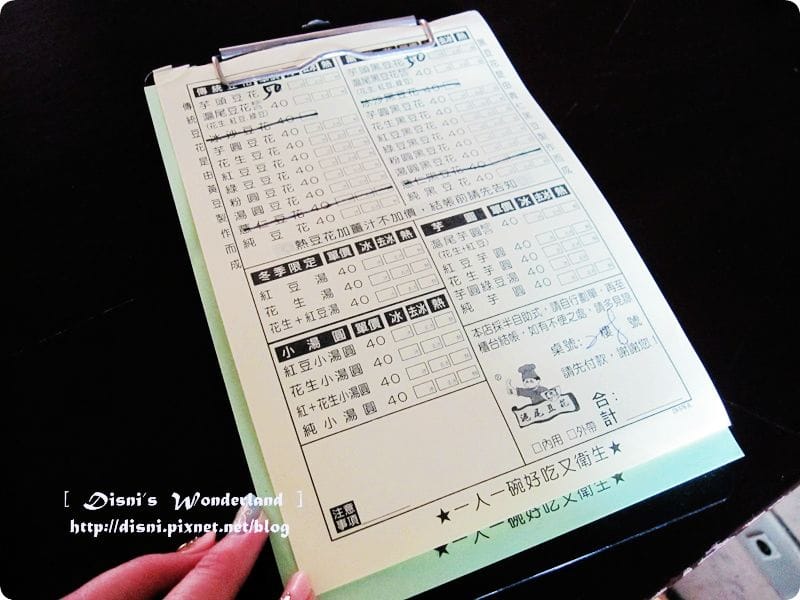 傳統豆花 單價 冰 去冰 熱
芋頭豆花 50
滬尾豆花 40
(花生、紅豆、綠豆)
冰沙豆花 40
芋圓豆花 40
花生豆花 40
紅豆豆花 40
綠豆豆花 40
粉圓豆花 40
湯圓豆花 40
薏仁豆花 40
純豆花 40
傳統豆花是由黃豆製作而成
熱
芋頭黑豆花 50
滬尾黑豆花
(花生、紅豆、綠豆)
冰沙黑豆花 40
芋圓黑豆花 40
花生黑豆花 40
紅豆黑豆花 40
綠豆黑豆花 40
粉圓黑豆花 40
湯圓黑豆花 40
薏仁黑豆花 40
純黑豆花 40
熱豆花加薑汁不加價,結帳前請先告知
冬季限定 單價 冰 去冰 熱
紅豆湯 40
花生湯 40
花生+紅豆湯 40
芋圓 單價 冰 去冰 熱
滬尾芋圓 50
(花生+紅豆)
紅豆芋圓 50
花生芋圓 50
芋圓綠豆湯 50
純芋圓 50
小湯圓 單價 冰 去冰 熱
紅豆小湯圓 40
花生小湯圓 40
紅+花生小湯圓 40
純小湯圓 40
本店採半自助式,請自行劃單,再至
櫃台結帳,如有不便之處,請多見諒
桌號: 2樓 8 號
請先付款,謝謝您!
滬尾豆花
合計:
□內用 □外帶
注意事項
★一人一碗好吃又衛生★
★一人一碗好吃又衛生★
[ Disni's Wonderland ]
http://disni.pixnet.net/blog